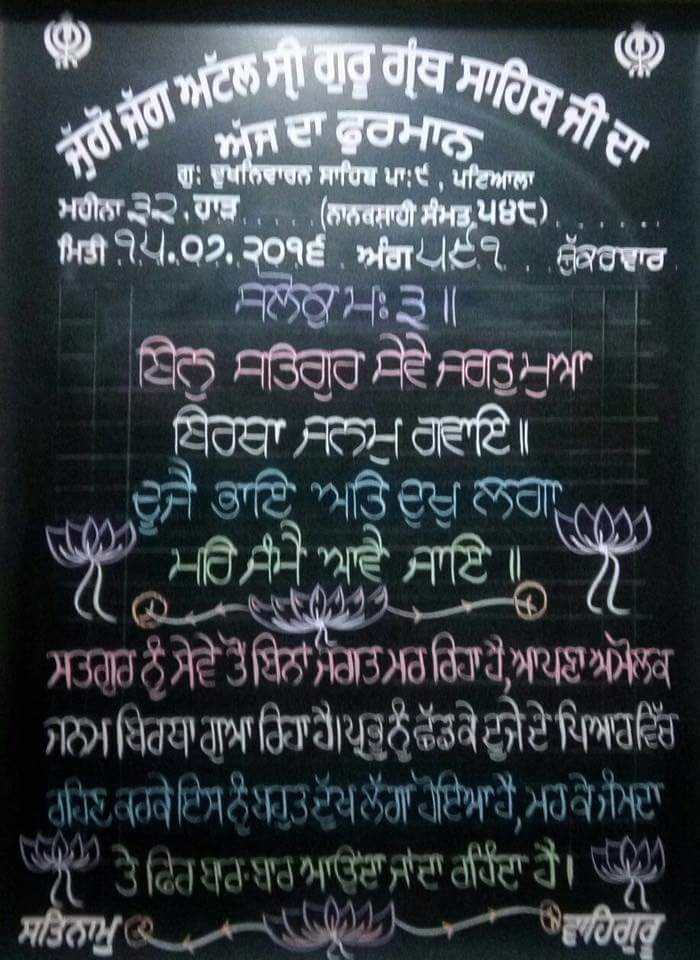 ਜੁੱਗੋ ਜੁੱਗ ਅਟੱਲ ਸ੍ਰੀ ਗੁਰੂ ਗ੍ਰੰਥ ਸਾਹਿਬ ਜੀ ਦਾ
ਅੱਜ ਦਾ ਫੁਰਮਾਨ
ਗੁ: ਦੁਖਨਿਵਾਰਨ ਸਾਹਿਬ ਪਾ:੯ , ਪਟਿਆਲਾ
ਮਹੀਨਾ ੩੨. ਹਾੜ ..... (ਨਾਨਕਸ਼ਾਹੀ ਸੰਮਤ ੫੪੮) ......
ਮਿਤੀ ੧੫.੦੭.੨੦੧੬ ਅੰਗ ੫੯੧ ਸ਼ੁੱਕਰਵਾਰ
ਸਲੋਕੁ ਮ: ੩ ॥
ਬਿਨੁ ਸਤਿਗੁਰ ਸੇਵੇ ਜਗਤੁ ਮੁਆ
ਬਿਰਥਾ ਜਨਮੁ ਗਵਾਇ ॥
ਦੂਜੈ ਭਾਇ ਅਤਿ ਦੁਖੁ ਲਗਾ
ਮਰਿ ਜੰਮੈ ਆਵੈ ਜਾਇ ॥
ਸਤਗੁਰ ਨੂੰ ਸੇਵੇ ਤੋਂ ਬਿਨਾਂ ਜਗਤ ਮਰ ਰਿਹਾ ਹੈ, ਆਪਣਾ ਅਮੋਲਕ
ਜਨਮ ਬਿਰਥਾ ਗੁਆ ਰਿਹਾ ਹੈ। ਪ੍ਰਭੂ ਨੂੰ ਛੱਡ ਕੇ ਦੂਜੇ ਦੇ ਪਿਆਰ ਵਿੱਚ
ਰਹਿਣ ਕਰਕੇ ਇਸ ਨੂੰ ਬਹੁਤ ਦੁੱਖ ਲੱਗਾ ਹੋਇਆ ਹੈ, ਮਰ ਕੇ ਜੰਮਦਾ
ਤੇ ਫਿਰ ਬਾਰ-ਬਾਰ ਆਉਂਦਾ ਜਾਂਦਾ ਰਹਿੰਦਾ ਹੈ।
ਸਤਿਨਾਮੁ ਵਾਹਿਗੁਰੂ